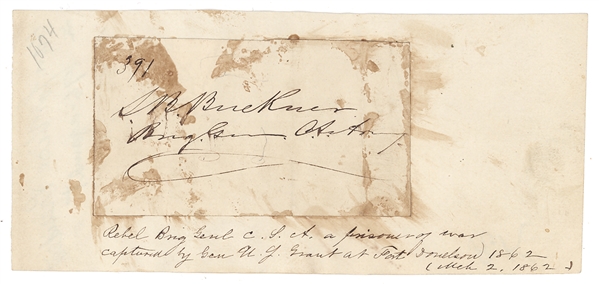 1674
391
S B. Buckner
Brig. Gen. C. S. Army
Rebel Brig Genl C. S. A. a prisoner of war
captured by Gen U. S. Grant at Fort Donelson 1862
(Mch 2, 1862)